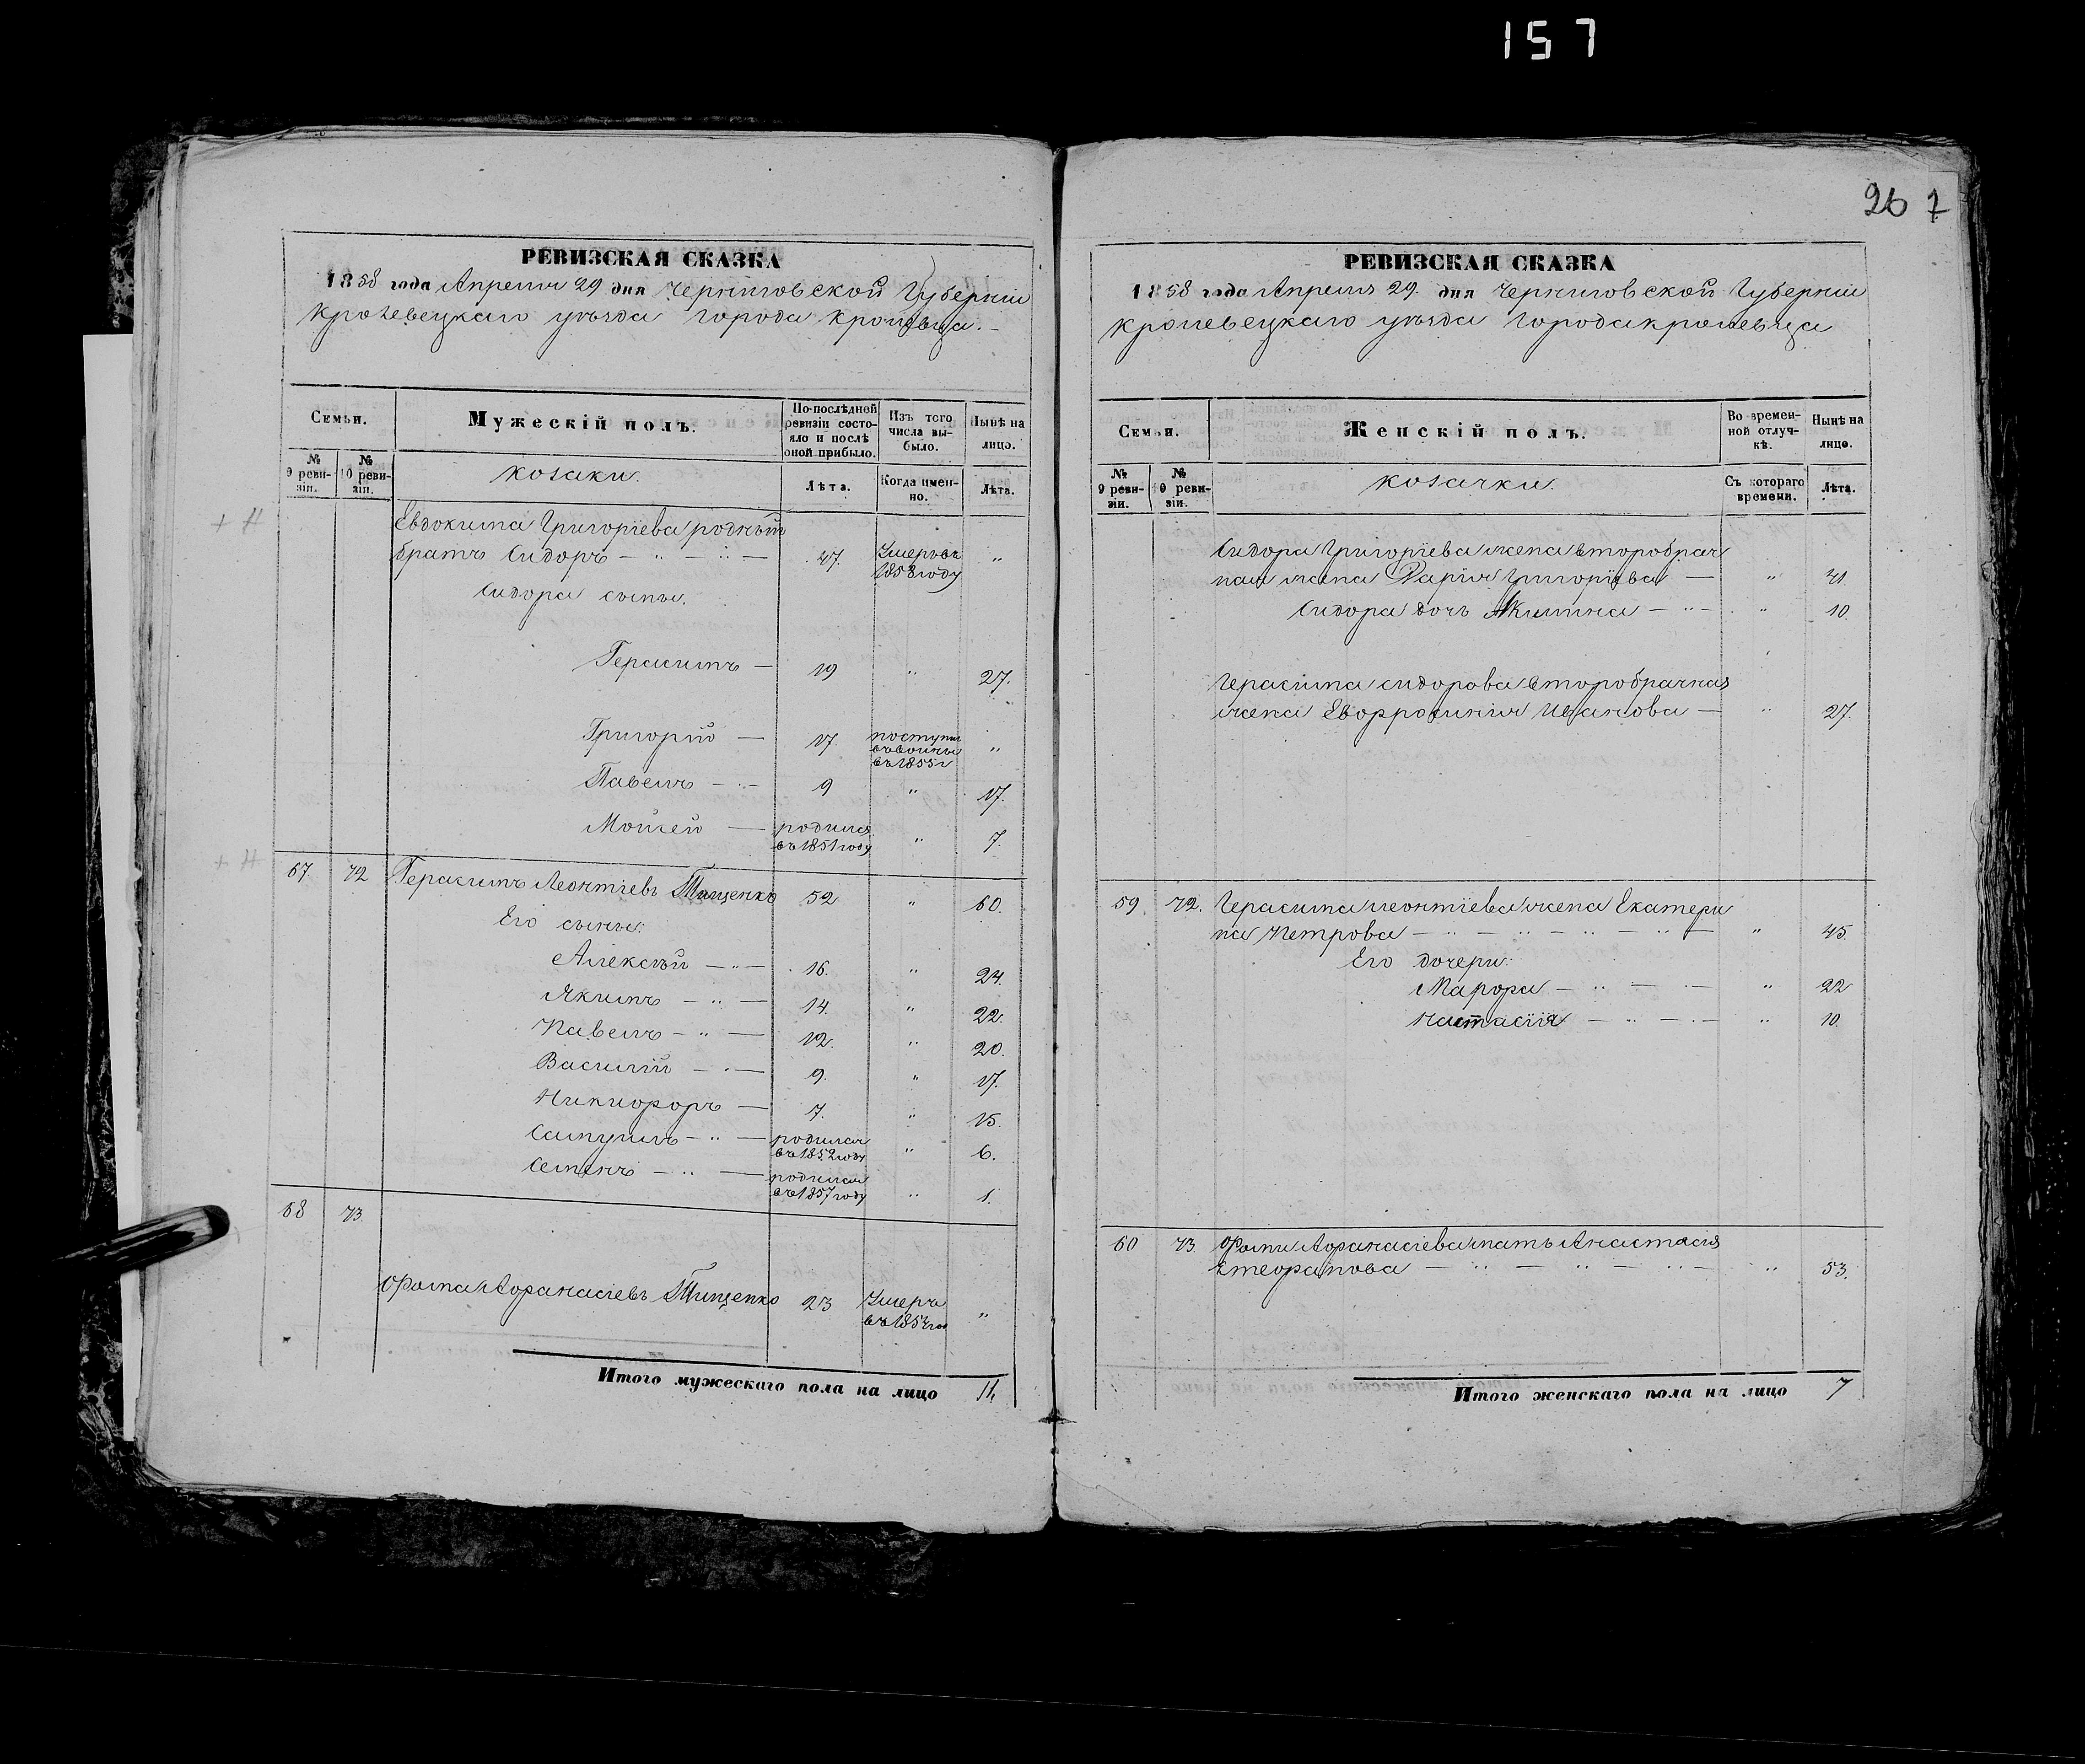 157
РЕВИЗСКАЯ СКАЗКА
1858 года Апреля 29 дня Черниговской Губерніи
Кролевецкаго уѣзда города Кролевца.
Семьи.
Мужескій полъ.
По послѣдней ревизіи состояло и послѣ оной прибыло.
Изъ того числа выбыло.
Нынѣ на лицо.
№ 9 ревизіи.
№ 10 ревизіи.
козаки.
Лѣта.
Когда именно.
Лѣта.
Евдокима Григоріева родный
братъ Сидоръ — " — 47. Умеръ въ 1858 году "
Сидора сыны.
Герасимъ — 19 " 27.
Григорій — 17. въ 1855 "
Павелъ — " — 9 " 17.
Мойсей — родился въ 1851 году " 7.
67. 72 Герасимъ Леонтіевъ Тищенко 52 " 60.
Его сыны:
Алексѣй — " — 16. " 24.
Якимъ — " — 14. " 22.
Павелъ — " — 12. " 20.
Василій — " — 9. " 17.
Никифоръ — 7. " 15.
Самуилъ — " — родился въ 1852 году " 6.
Семенъ — " — родился въ 1857 году " 1.
68 73.
Фома Афанасіевъ Тищенко 23 Умеръ "
Итого мужескаго пола на лицо 11
267
РЕВИЗСКАЯ СКАЗКА
1858 года Апреля 29. дня Черниговской Губерніи
Кролевецкаго уѣзда города Кролевца
Семьи.
Женскій полъ.
Во временной отлучкѣ.
Нынѣ на лицо.
№ 9 ревизіи.
№ 10 ревизіи.
козачки.
Съ котораго времени.
Лѣта.
Сидора Григоріева жена второбрач
ная жена Дарія Григоріева — " 41.
Сидора дочь Акилина — " — " 10.
Герасима Сидорова второбрачная
жена Евфросинія Иванова — " 27.
59 72. Герасима Леонтіева жена Екатери
на Петрова — " — " — " — " — " 45.
Его дочери:
Марфа — " — " — " 22
Настасія — " — " — " 10.
60 73. Фомы Афанасіева мать Анастасія
Стефанова — " — " — " — " 53.
Итого женскаго пола на лицо 7